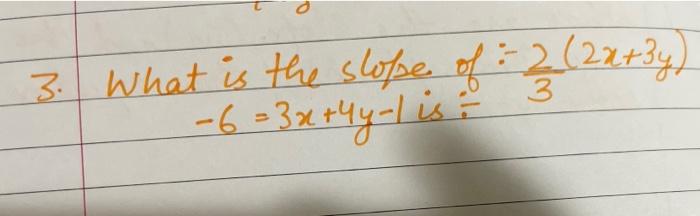 3. What is the slope of :- 2/3 (2x+3y)
-6 = 3x+4y-1 is :-